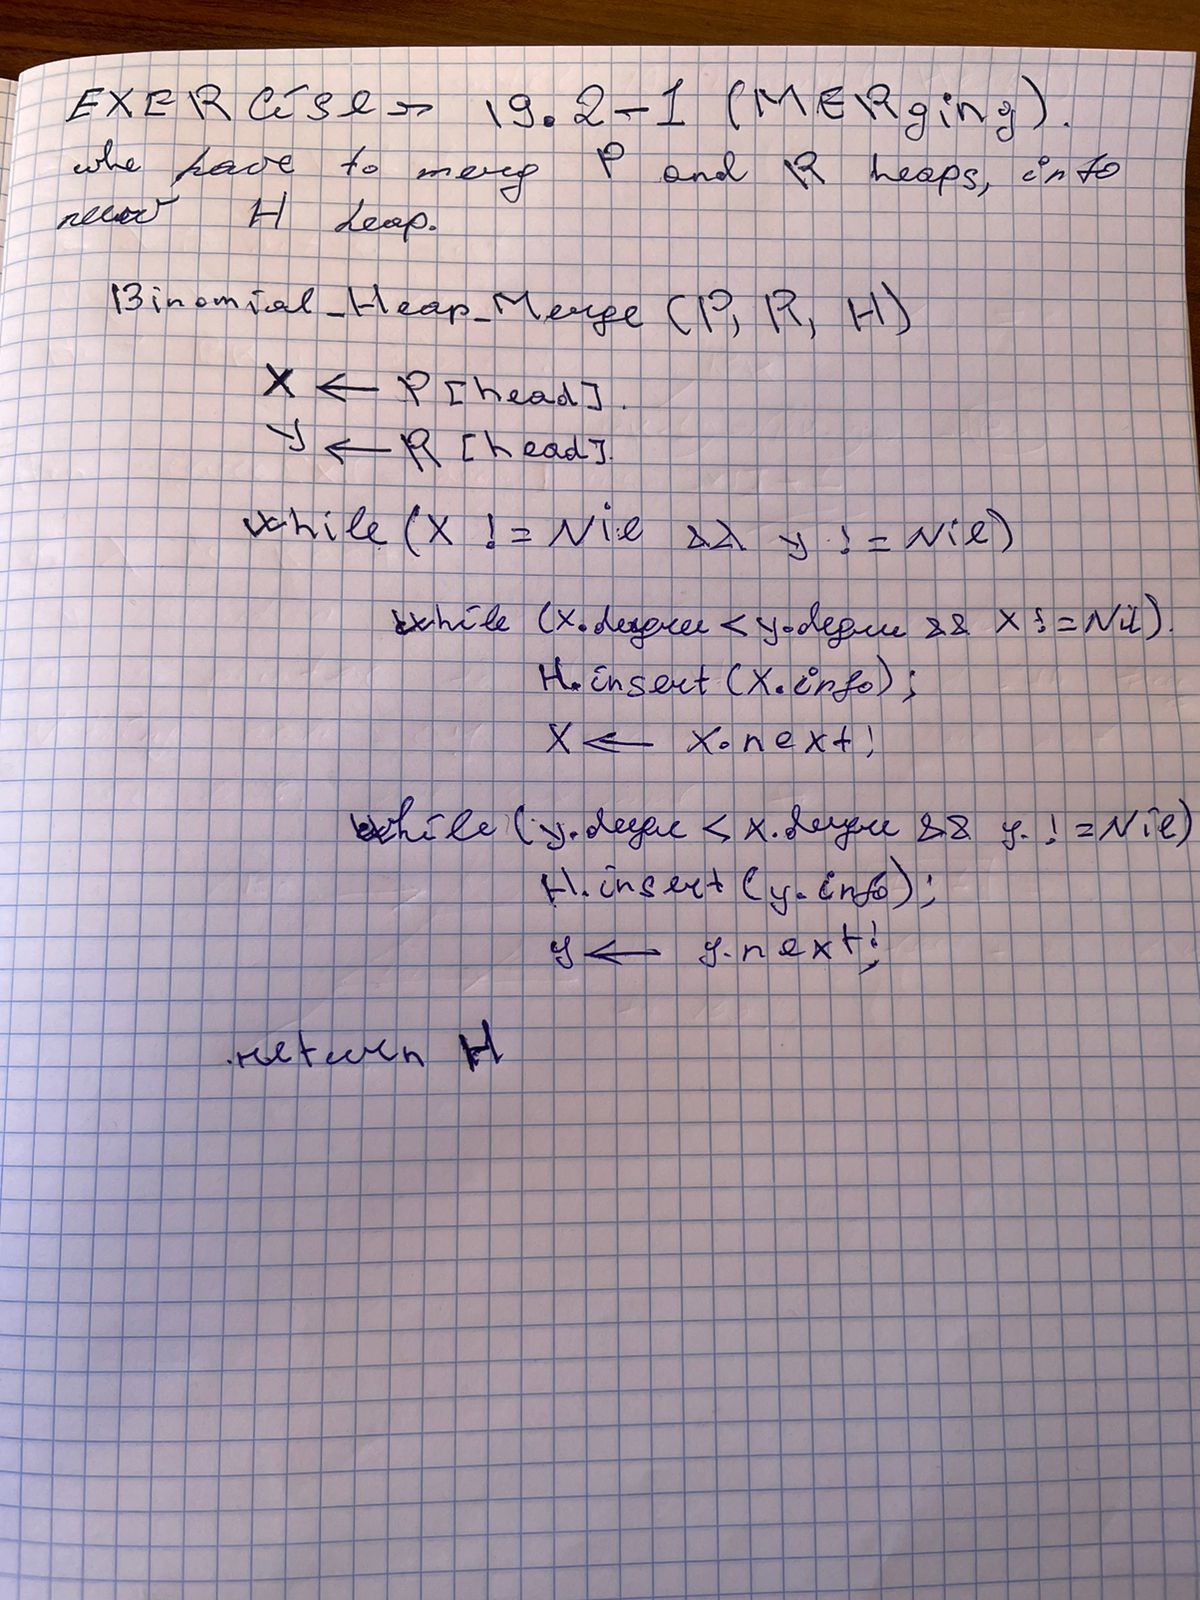 EXERCise→ 19.2-1 (MERging).
whe have to merg P and R heaps, into
new H heap.
Binomial_Heap_Merge (P, R, H)
X ← P[head].
y ← R[head].
while (X != Nil && y != Nil)
while (X.degree < y.degree && X != Nil).
H.insert (X.info);
X ← X.next;
while (y.degre < x.degree && y. != Nil)
H.insert (y.info);
y ← y.next;
return H